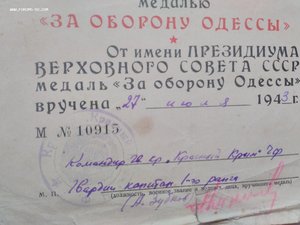 медалью
«ЗА ОБОРОНУ ОДЕССЫ»
От имени ПРЕЗИДИУМА
ВЕРХОВНОГО СОВЕТА СССР
медаль «За оборону Одессы»
вручена „27“ июля 1943 г.
М № 10915
Командир гв. кр. "Красный Крым" ЧФ
Гвардии капитан 1-го ранга
М. П. (должность, воинское звание и подпись лица, вручившего медаль)
(А. Зубков)